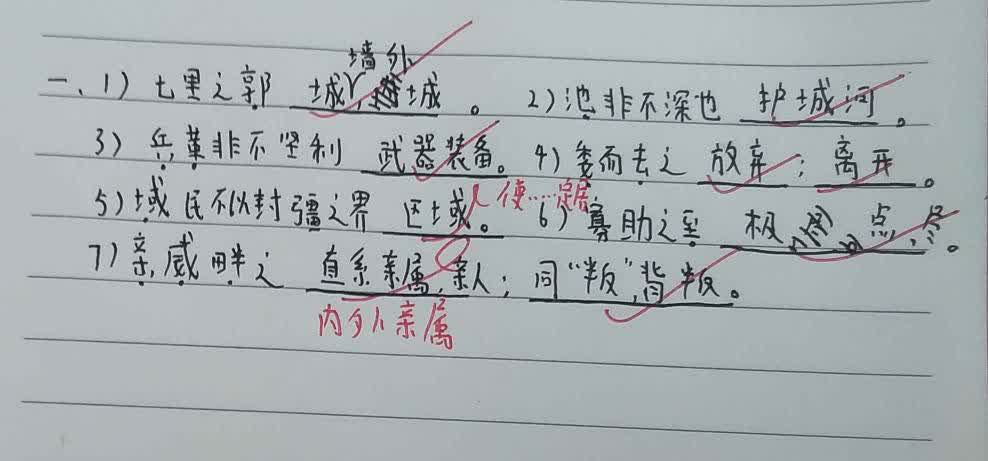 墙外
一、1) 七里之郭 城,城。 2) 池非不深也 护城河。
3) 兵革非不坚利 武器装备。 4) 委而去之 放弃;离开。
5) 域民不以封疆之界 区域。 使……定居 6) 寡助之至 极点,尽。
7) 亲戚畔之 直系亲属,亲人;同“叛”,背叛。
内外亲属